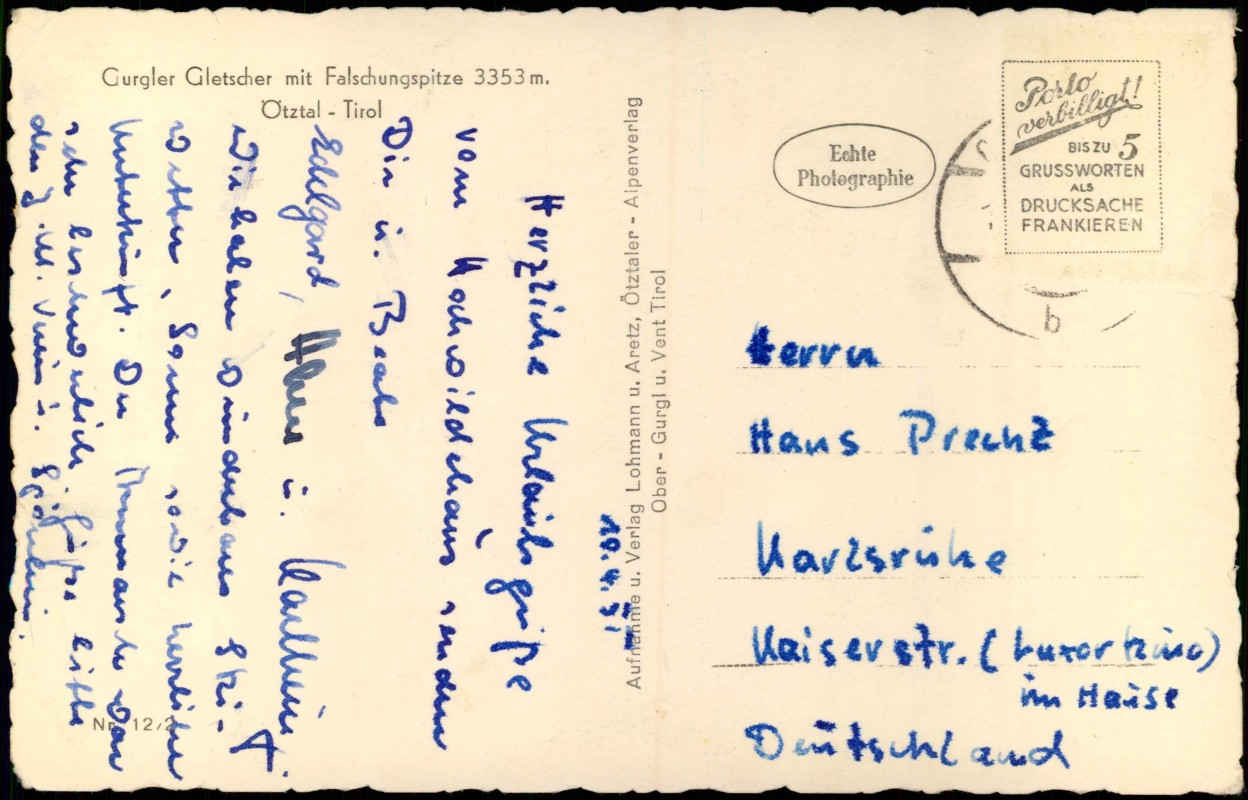 Gurgler Gletscher mit Falschungspitze 3353 m.
Ötztal - Tirol
10.4.51
Herzliche Urlaubsgrüße
vom Hochwildehaus senden
Dir u. Beate
Edelgard, u. Karlheinz.
Wir haben wunderbares Ski-
wetter, Sonne sowie herrliche
Unterkunft. Der war
sehr
den
Nr. 12/2
Aufnahme u. Verlag Lohmann u. Aretz, Ötztaler - Alpenverlag
Ober - Gurgl u. Vent Tirol
Echte
Photographie
Porto
verbilligt!
BIS ZU 5
GRUSSWORTEN
ALS
DRUCKSACHE
FRANKIEREN
b
Herrn
Hans Prechz
Karlsruhe
Kaiserstr. (Luxor Kino)
im Hause
Deutschland